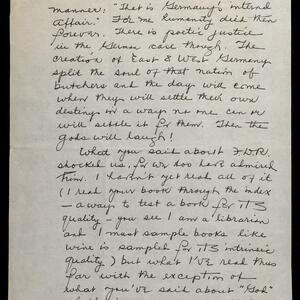 manner: "That is Germany's internal
affair." For me humanity died then
forever. There is poetic justice
in the German case though. The
creation of East & West Germany
split the soul of that nation of
butchers and the days will come
when they will settle their own
destiny in a way no one can or
will settle it for them. Then the
gods will laugh!
What you said about F.D.R.
shocked us, for we too have admired
him. I haven't yet read all of it
(I read your book through the index
- a way to test a book for its
quality - you see I am a librarian
and I must sample books like
wine is sampled for its intrinsic
quality) but what I've read thus
far with the exception of
what you've said about "Gott"